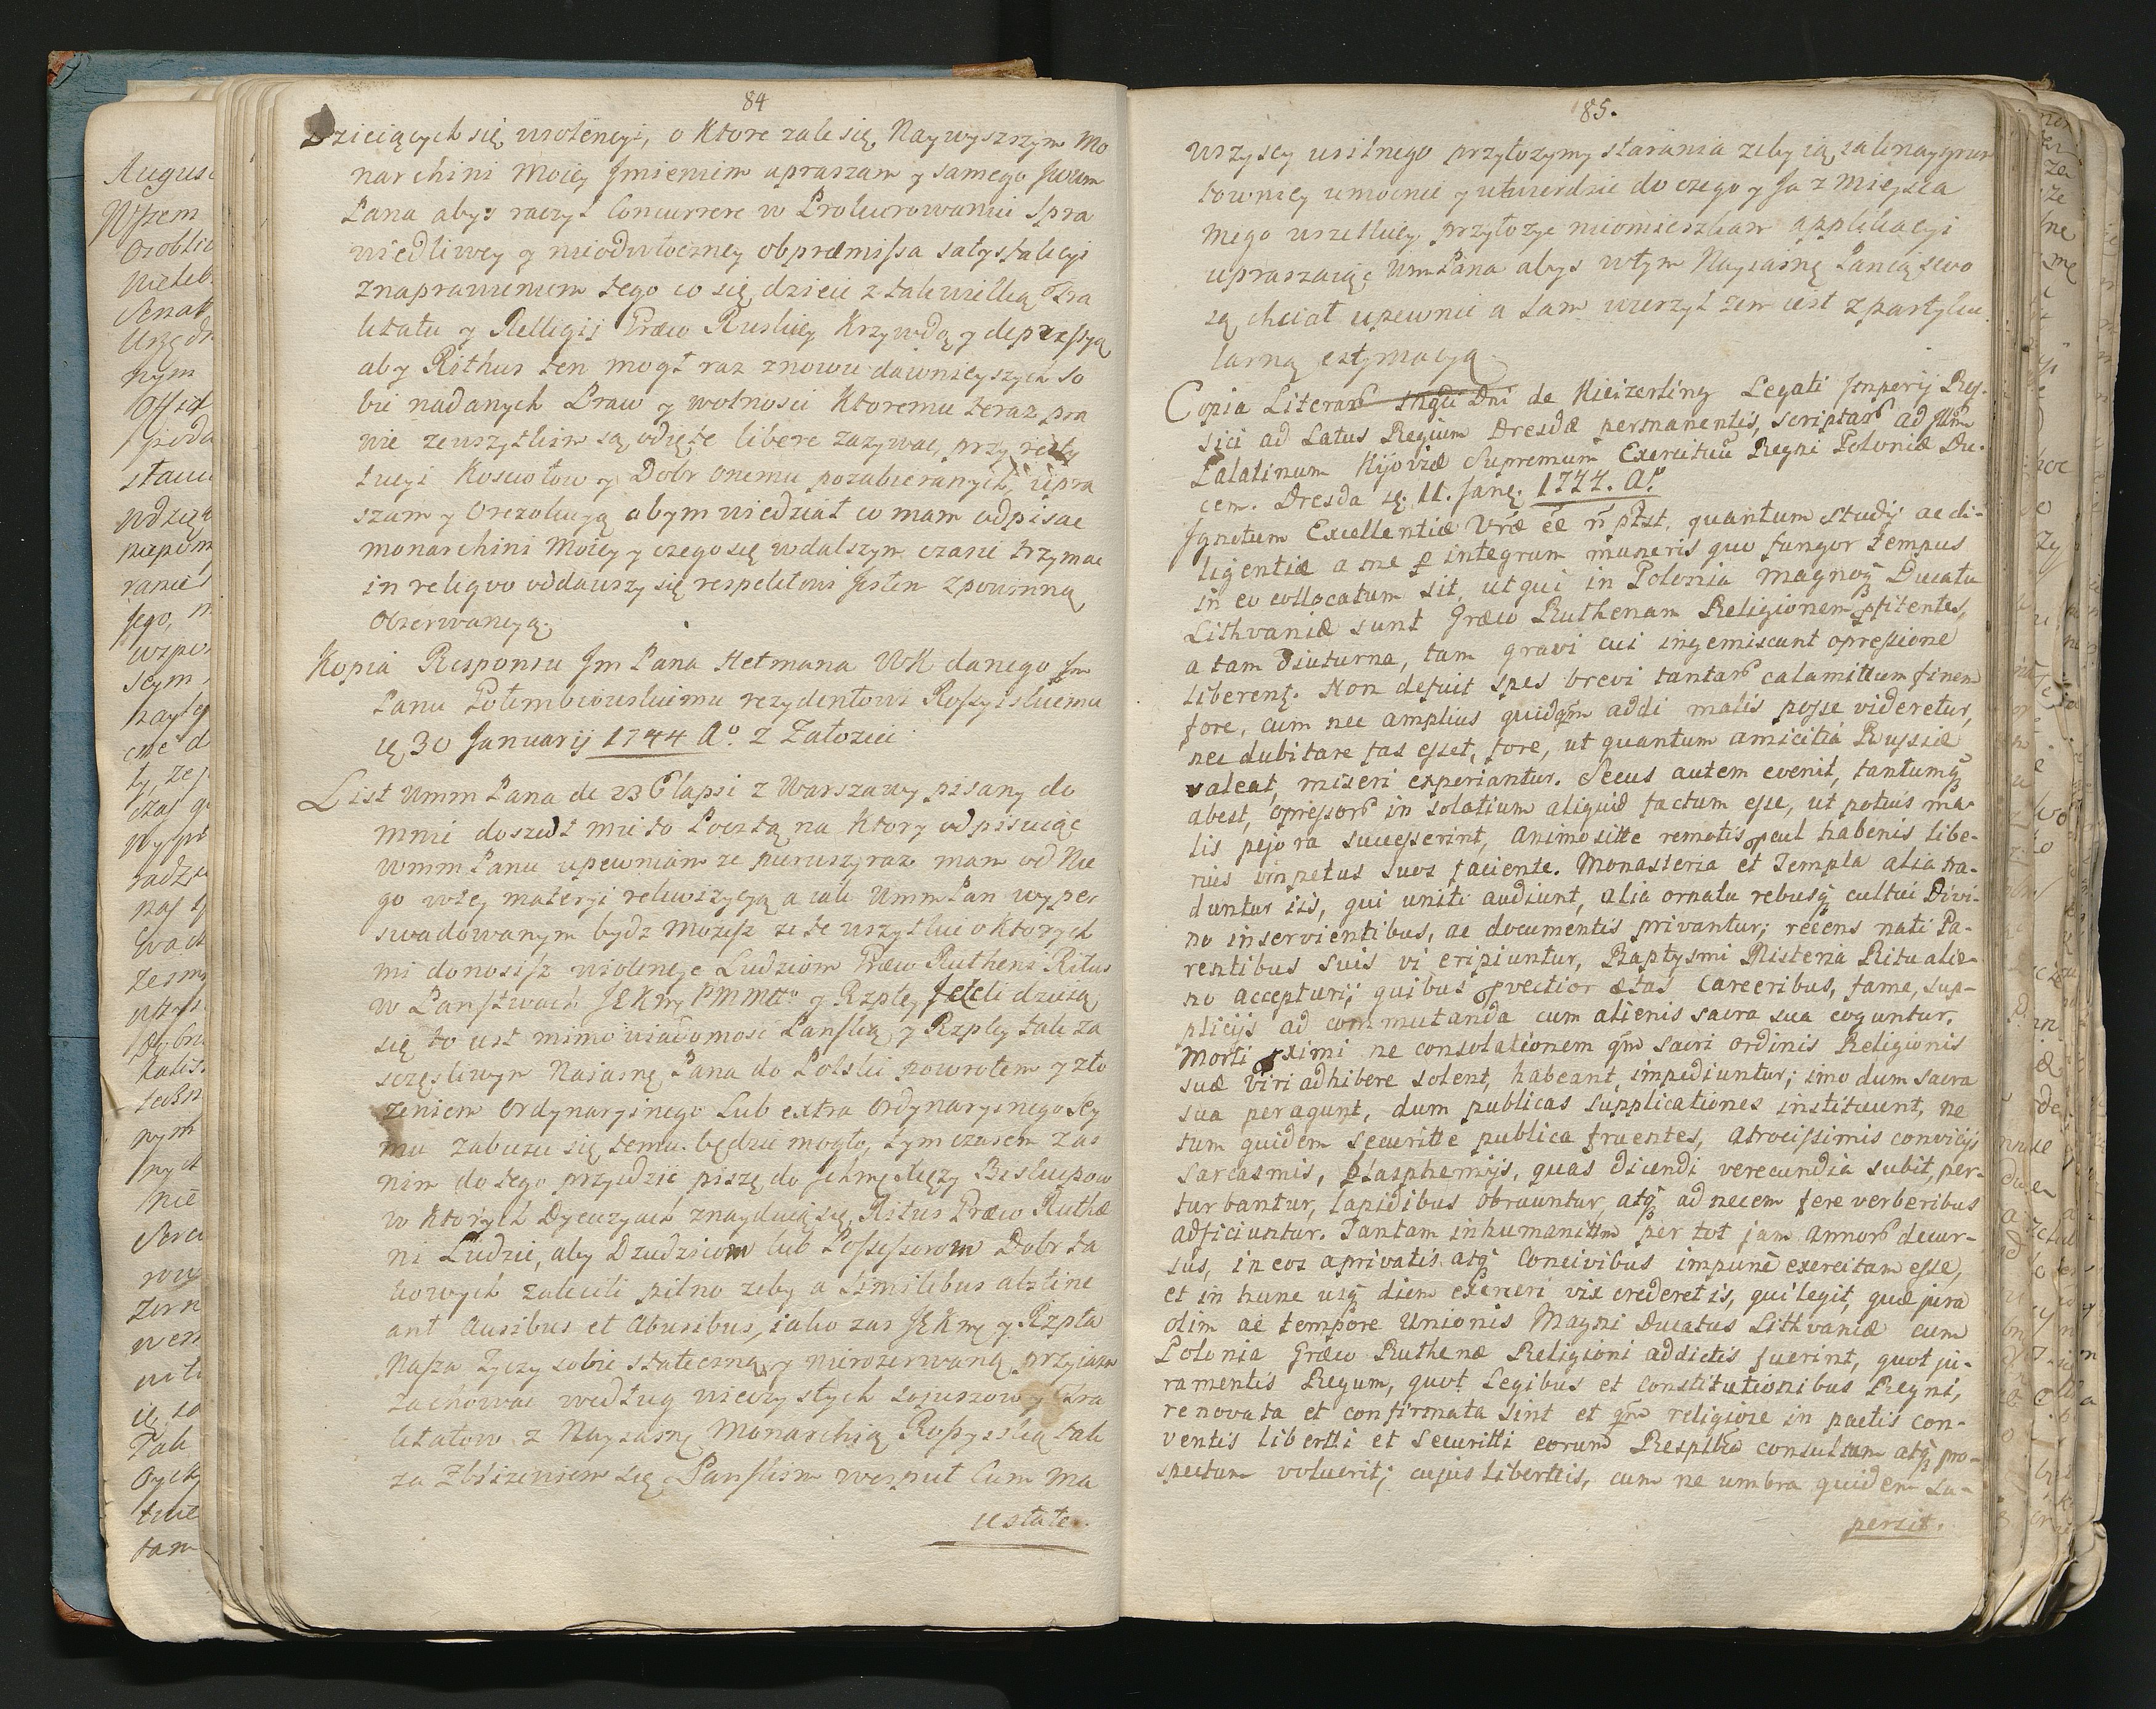 84
Dzieiących się wiolencyi, o ktore zale się Naywyszszym Mo
narchini Moiey Jmieniem upraszam y samego Jwum
Pana abyś raczył Concurrere w Prokurowaniu Spra
wiedliwey y nieodwłoczney ob præmissa satystakcyi
znaprawieniem tego co się dzieie z tak wielką Tra
ktatu y Relligij Græco Ruskiey krzywdą y depressyą
aby Rithus ten mogł raz znowu dawnieyszych so
bie nadanych Praw y wolnosci ktoremu teraz pra
wie zewszytkim są odięte libere zazywac, przy resty
tucyi Kosciołow y Dobr onemu pozabieranych, upra
szam y o rezolucyą abym wiedział co mam odpisac
monarchini Moiey y czego się wdalszym czasie trzymac
in reliqvo oddawszy się respektowi Jestem z powinną
obzerwancyą.
Kopia Responsu Jm Pana Hetmana WK danego Jm
Panu Golembiowskiemu rezydentowi Rossyiskiemu
ię 30 Januarij 1744 Aº. z Załoziec
List Wmm Pana de 23 Elapsi z Warszawy pisany do
mnie doszedł mie to Pocztą na ktory odpisuiąc
Wmm Panu upewniam ze pierwszy raz mam od Nie
go wtey materyi rekwizycyą a iak Wmm Pan wyper
swadowanym bydz mozesz ze te wszytkie o ktorych
mi donosisz wiolencye Ludziom Græco Rutheni Ritus
w Panstwach JEKmę PMMttº y Rzpltey Jeżeli dzieią
się to iest mimo wiadomosc Panską y Rzpltey tak za
sczęsliwym Naiasnę Pana do Polski powrotem y zło
zeniem ordynaryinego Lub extra ordynaryinego Sey
mu zabiezec się temu będzie mogło, tymczasem zas
nim do tego przydzie piszę do Jchmę Xięzy Biskupow
w ktorych Dyecezyach znayduią się Ritus Græco Ruthæ
ni Ludzie, aby Dziedzicom lub Possessorom Dobr ta
kowych zalecili pilno zeby a similibus abstine
ant Ausibus et Abusibus, iako zas JEKmę y Rzplta
Nasza zyczy sobie stateczną y nierozerwaną przyiazn
zachowac według wieczystych sojuszow y Tra
ktatow z Nayiasnę Monarchią Rossyiską tak
za Zblizeniem się Panskim wespuł Cum Ma
iestate.
85.
Wszyscy usilnego przyłozymy starania zeby ią iak naygrun
towniey umocnic y utwierdzic do czego y Ja z mieysca
mego wszelkiey przyłozyc nieomieszkam applikacyi
upraszaiąc Wm Pana abys wtym Nayiasnę Panią swo
ią chciał upewnic a tam wierzył zem iest z partyku
larną estymacyą
Copia Literaꝝ Dni de Kieizerling Legati Jmperij Rus-
sici ad Latus Regium Dresdæ permanentis, scriptaꝝ ad Jllm
Palatinum Kijoviæ Supremum Exercituũ Regni Poloniæ Du-
cem. Dresda ię. 11. Janę. 1744. Aº.
Jgnotum Excellentiæ Vræ ee ñ ptst, quantum studij ac di-
ligentiæ a me ꝑ integrum muneris quo fungor tempus
in eo collocatum sit, ut qui in Polonia magnoqꝫ Ducatu
Lithvaniæ sunt Græco Ruthenam Religionem ꝓfitentes,
a tam diuturna, tam gravi cui ingemiscunt opressione
liberent. Non defuit spes brevi tantaꝝ calamittum finem
fore, cum nec amplius quidqm addi malis posse videretur,
nec dubitare fas esset, fore, ut quantum amicitia Russiæ
valeat, miseri experiantur. Secus autem evenit, tantumqꝫ
abest, opressoꝝ in solatium aliquid factum esse, ut potuis ma-
lis pejora successerint, animositte remotis ꝓcul habenis libe-
rius impetus suos faciente. Monasteria et Templa alia tra-
duntur iis, qui uniti audiunt, alia ornatu rebusqꝫ cultui Divi-
no inservientibus, ac documentis privantur; recens nati Pa-
rentibus suis vi eripiuntur, Baptysmi Misteria Ritu alie-
no accepturi; quibus ꝓvectior ætas Carceribus, fame, sup-
plicijs ad commutanda cum alienis sacra sua coguntur.
Morti ꝓximi ne consolationem qm sacri ordinis Religionis
suæ viri adhibere solent, habeant, impediuntur; imo dum sacra
sua peragunt, dum publicas supplicationes instituunt, ne
tum quidem securitte publica fruentes, atrocissimis convicijs
Sarcasmis, Blasphemijs, quas dicendi verecundia subit, per-
turbantur, lapidibus obruuntur, atqꝫ ad necem fere verberibus
adficiuntur. Tantam inhumanittm per tot jam annoꝝ decur-
sus, in eos a privatis atqꝫ Concivibus impunè exercitam esse,
et in hunc usqꝫ diem exerceri vix crederet is, qui legit, quæ jura
olim ac tempore Unionis Magni Ducatus Lithvaniæ cum
Polonia Græco Ruthenæ Religioni addictis fuerint, quot ju-
ramentis Regum, quot Legibus et Constitutionibus Regni,
renovata et confirmata sint et qm religiose in pactis con-
ventis libertti et Securitti eorum Respublica consultum atqꝫ pro-
spectum voluerit; cujus liberttis, cum ne umbra quidem su-
persit.